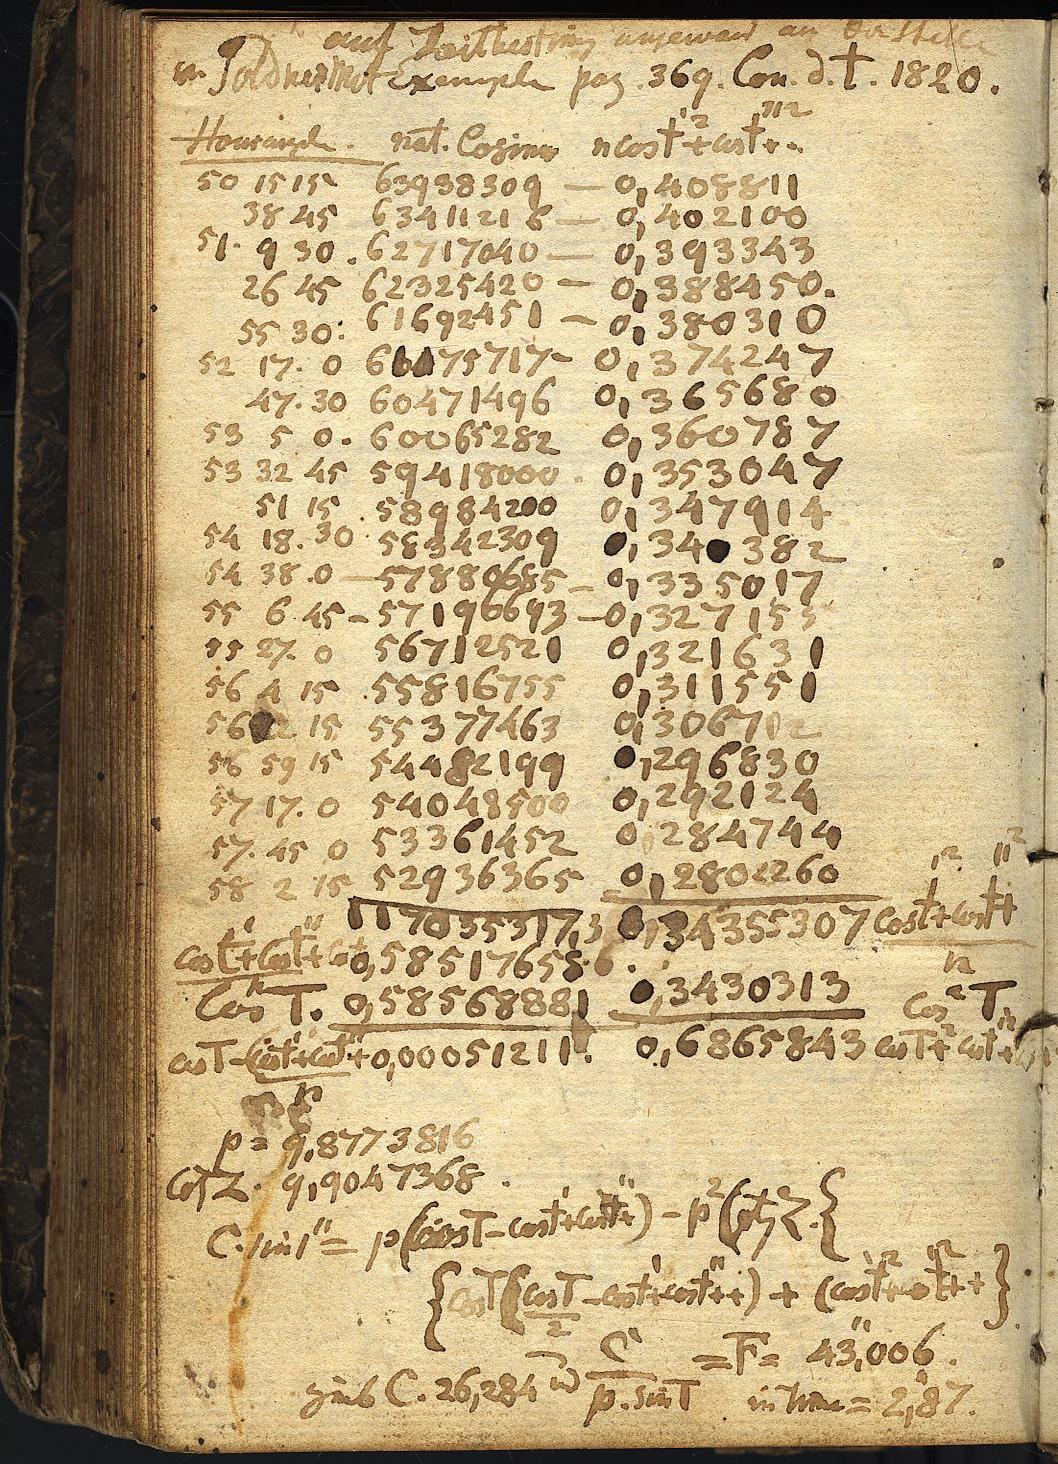 auf
in Soldners Exemple pag. 369. Con. d. t. 1820.
nat. Cosinus n cost'²+cost''²+.
50 15 15 63938309 — 0,408811
38 45 63411216 — 0,402100
51. 9 30 . 62717040 — 0,393343
26 45 62325420 — 0,388450.
55 30: 61692451 — 0,380310
52 17. 0 61175717 - 0,374247
47. 30 60471496 0,365680
53 5 0. 60065282 0,360787
53 32 45 59418000 . 0,353047
51 15 . 58984200 0,347914
54 18. 30 . 58342309 0,340382
54 38. 0 — 57880685 — 0,335017
55 6. 45 - 57196693 — 0,327155
55 27. 0 56712521 0,321631
56 4 15 . 55816755 0,311551
56 22 15 55377463 0,306702
56 59 15 54482199 0,296830
57 17. 0 54048500 0,292124
57. 45 0 53361452 0,284744
58 2 15 52936365 0,2802260
1170355317,3 0,34355307 cost'²+cost''²+
cost'+cost''+cost 0,585176556. n
Cos T. 0,58568881 0,3430313 cos² T
cosT-(cost'+cost''+ 0,00051211. 0,6865843 cosT²+cost'²+
n
p = 9,8773816
CosZ. 9,9047368.
C. sin 1'' = p(cosT - cost'+cost''+) - p²(cotgZ.{
{cosT(cosT - cost'+cost''++) + (cost'²+cost''²++}
2
C = F = 43'',006.
C. 26,284 p. sinT in = 2,87.